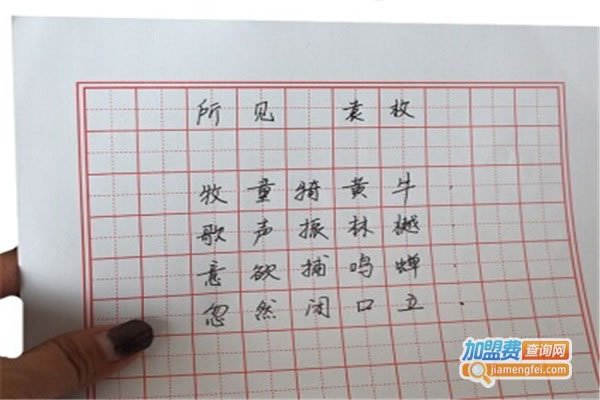 所见 袁枚
牧童骑黄牛.
歌声振林樾
意欲捕鸣蝉.
忽然闭口立.
加盟费查询网
jiamengfei.com